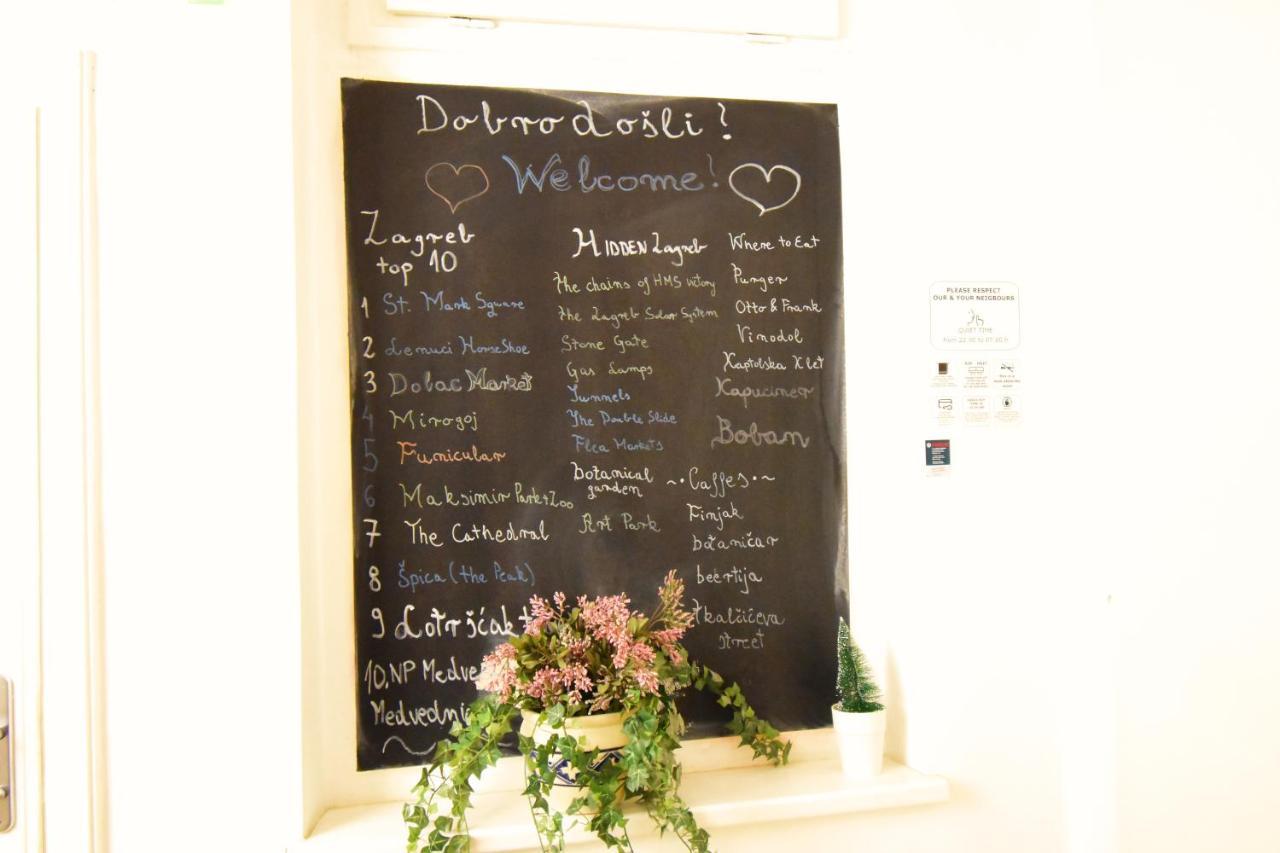 Dobrodošli!
Welcome!
Zagreb
top 10
1 St. Mark Square
2 Lenuci HorseShoe
3 Dolac Market
4 Mirogoj
5 Funicular
6 Maksimir Park+Zoo
7 The Cathedral
8 Špica (the Peak)
9 Lotršćak t
10. NP Medve
Medvedni
HIDDEN Zagreb
the chains of HMS victory
the Zagreb Solar System
Stone Gate
Gas Lamps
Tunnels
The Double Slide
Flea Markets
botanical
garden
Art Park
Where to Eat
Purger
Otto & Frank
Vinodol
Kaptolska Klet
Kapuciner
Boban
~·Caffes·~
Finjak
botaničar
beertija
tkalčićeva
street
PLEASE RESPECT
OUR & YOUR NEIGBOURS
QUIET TIME
from 22:00 to 07:00 h